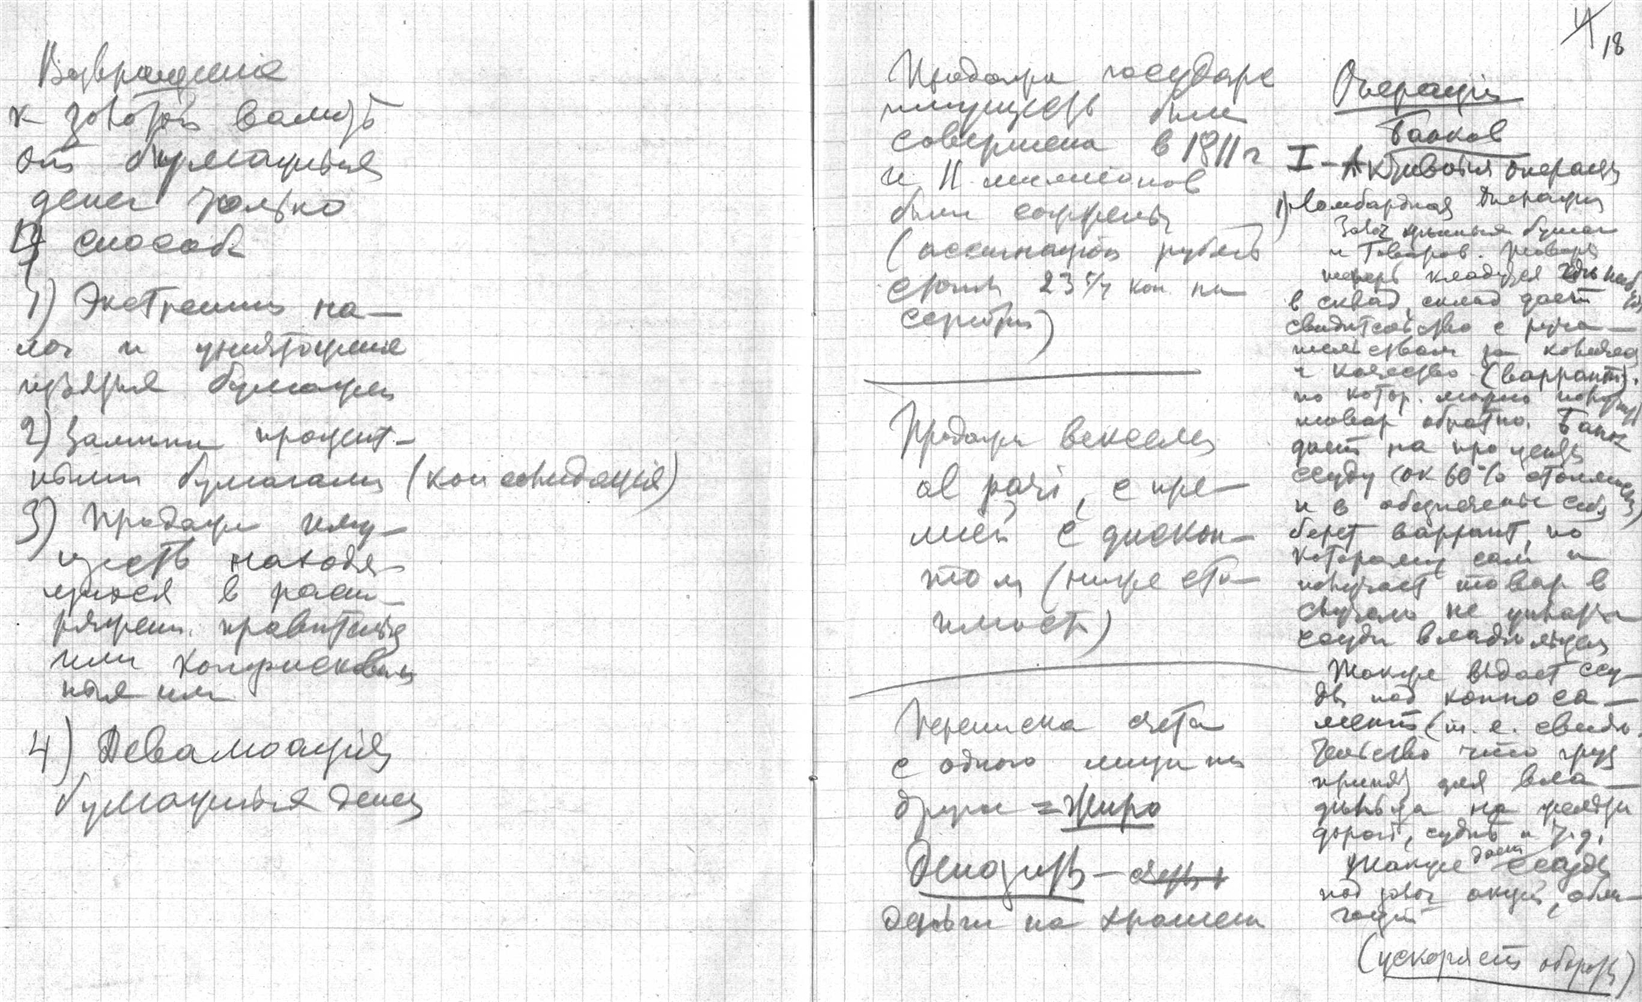 Возвращение
к золотой валютѣ
отъ бумажныхъ
денег только
4 способа
1) Экстренный на-
лог и уничтожение
изъятыя бумаги
2) Замѣны процент-
ными бумагами (консолидацiя)
3) Продажи иму-
ществ находя-
щихся в распо-
ряжен. правитель
или конфискован
ныя им
4) Девальвацiя
бумажныя денег
4
18
Продажи государс
имуществъ были
совершена в 1811 г
и 11 миллионов
были
(ассигнацiон рубль
стоил 23 5/7 коп. на
серебро)
Продажи векселя
al pari, с пре-
мiей с дискон-
том (ниже сто-
имости)
Переписка счета
с одного лица на
другое = жиро
Депозитъ -
деньги на хранен
Операцiи
Банков
I - Активныя операцiи
1) Ломбардная операцiя
Залог цѣнныя бумаг
и товаров. Товары
теперь кладутся
в склад, склад дает
свидѣтельство с руча-
тельством за колич
и качество (варрант).
по котор. можно получ
товар обратно. Банк
дает на проценты
ссуду (ок 60% стоимости)
и в обезпечение себѣ
берет варрант, по
которому сам и
получает товар в
случаѣ не уплаты
ссуды владѣльцем
Также выдает ссу-
ды под коносса-
мент (т. е. свидѣ-
тельство что груз
принят для вла-
дѣльца на желѣзн
дорогѣ, суднѣ и т.д.
Также дает ссуды
под залог акцiй, обли-
гацiй
(ускоряетъ оборотъ)